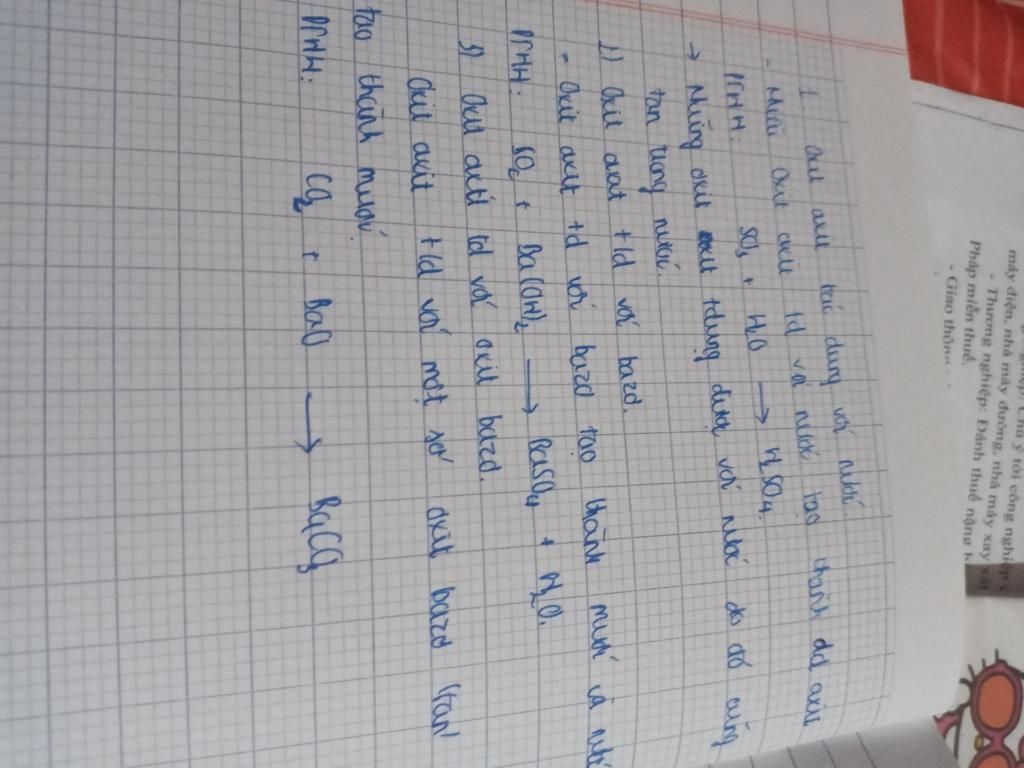 1 oxit axit tác dụng với nước
- Nhiều oxit axit td với nước tạo thành dd axit
PTHH: SO3 + H2O → H2SO4.
→ Những oxit axit tdụng được với nước do đó cũng
tan trong nước.
2) oxit axit +td với bazơ.
- oxit axit +td với bazơ tạo thành muối và nước
PTHH: SO2 + Ba(OH)2 → BaSO4 + H2O.
3) oxit axit td với oxit bazơ.
oxit axit +td với một số oxit bazơ (tan)
tạo thành muối.
PTHH: CO2 + BaO → BaCO3
Chú ý tới công nghiệp,
máy điện, nhà máy đường, nhà máy xay xát
- Thương nghiệp: Đánh thuế nặng h
Pháp miễn thuế.
- Giao thông